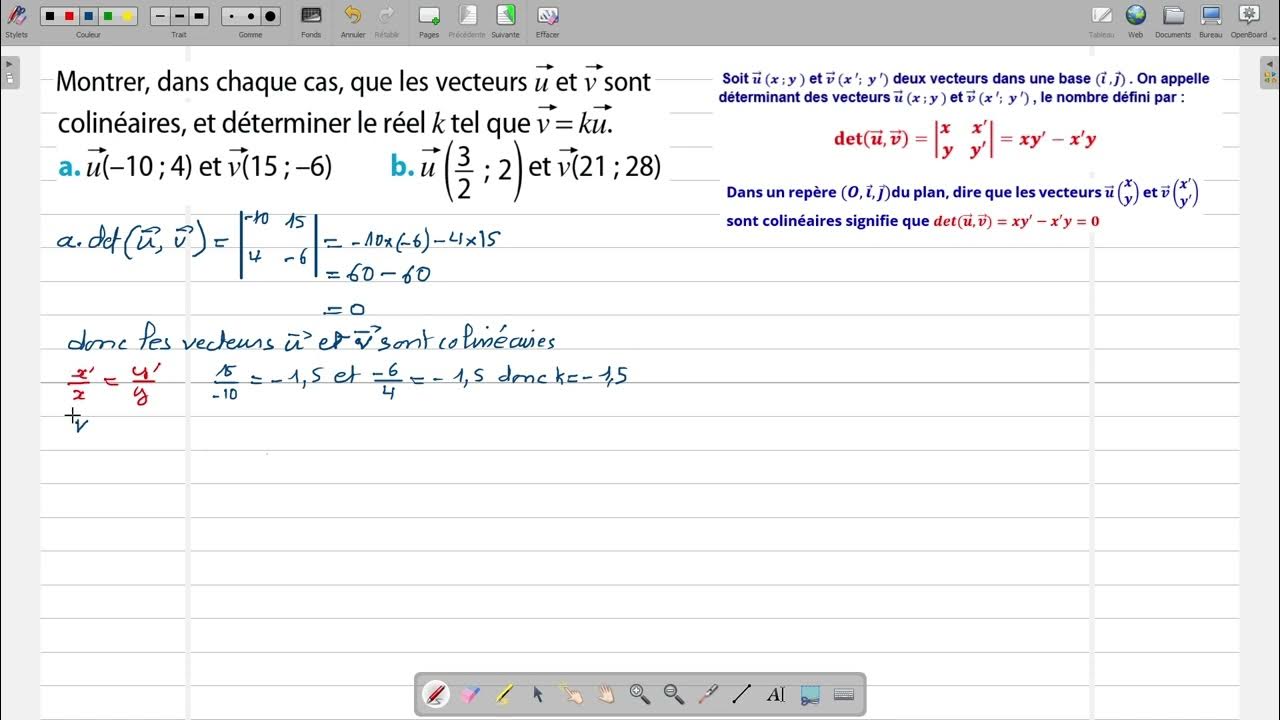 Stylets Couleur Trait Gomme Fonds Annuler Rétablir Pages Précédente Suivante Effacer Tableau Web Documents Bureau OpenBoard
Montrer, dans chaque cas, que les vecteurs u⃗ et v⃗ sont
colinéaires, et déterminer le réel k tel que v⃗ = ku⃗.
a. u⃗(–10 ; 4) et v⃗(15 ; –6) b. u⃗(3/2 ; 2) et v⃗(21 ; 28)
Soit u⃗ (x ; y) et v⃗ (x′; y′) deux vecteurs dans une base (i⃗, j⃗). On appelle
déterminant des vecteurs u⃗ (x ; y) et v⃗ (x′; y′), le nombre défini par :
det(u⃗, v⃗) = |x x′
y y′| = xy′ − x′y
Dans un repère (O, i⃗, j⃗)du plan, dire que les vecteurs u⃗(x y) et v⃗(x′ y′)
sont colinéaires signifie que det(u⃗, v⃗) = xy′ − x′y = 0
a. det(u⃗, v⃗) = |-10 15
4 -6| = -10×(-6) - 4×15
= 60 - 60
= 0
donc les vecteurs u⃗ et v⃗ sont colinéaires
x'/x = y'/y 15/-10 = -1,5 et -6/4 = -1,5 donc k = -1,5
v
AI